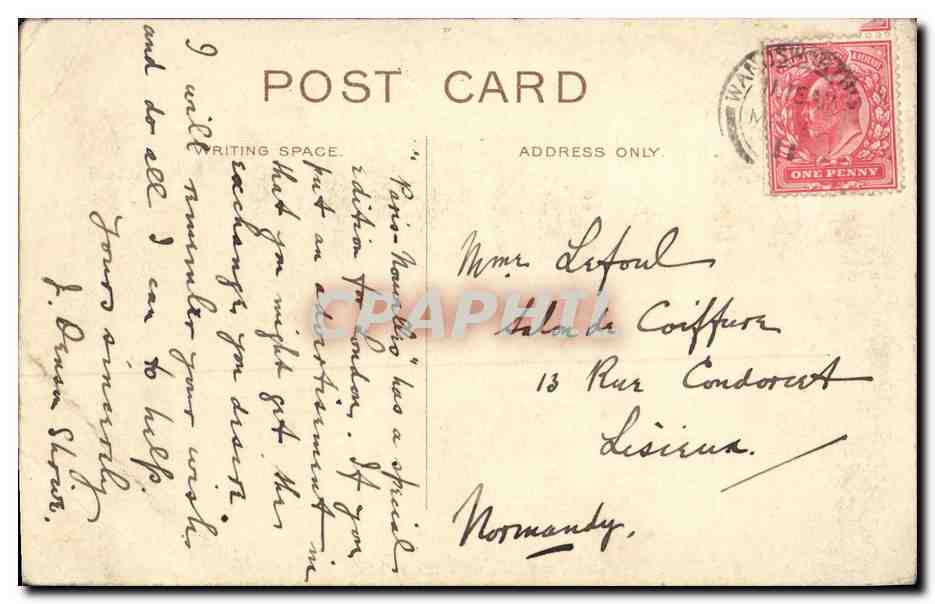 POST CARD
WRITING SPACE.
ADDRESS ONLY.
"Paris-Nouvelles" has a special
edition for London. If you
put an advertisement in
that you might get the
exchange you desire.
I will remember your wishes
and do all I can to help.
Yours sincerely
J. Shore.
Mme Lefoul
Salon de Coiffure
13 Rue Condorcet
Lisieux.
Normandy.
ONE PENNY
CPAPHIL